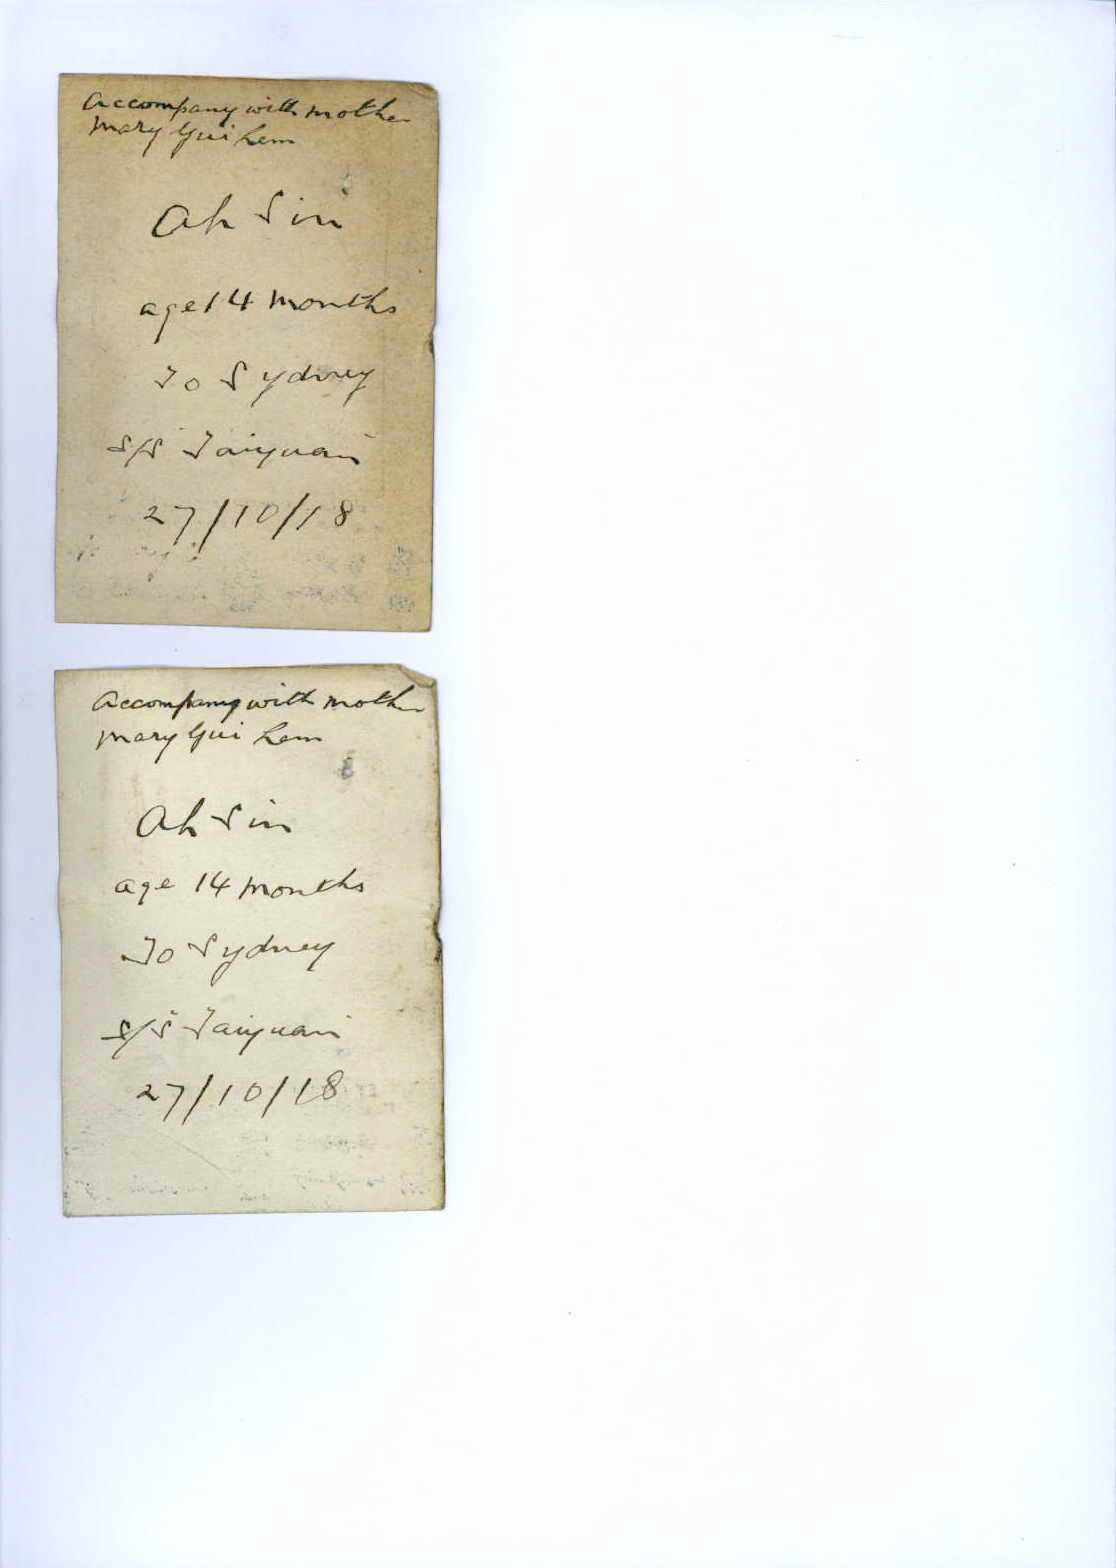 Accompany with mother
Mary Gui Lem
Ah Sin
age 14 months
To Sydney
s/s Taiyuan
27/10/18
Accompany with mother
Mary Gui Lem
Ah Sin
age 14 months
To Sydney
s/s Taiyuan
27/10/18